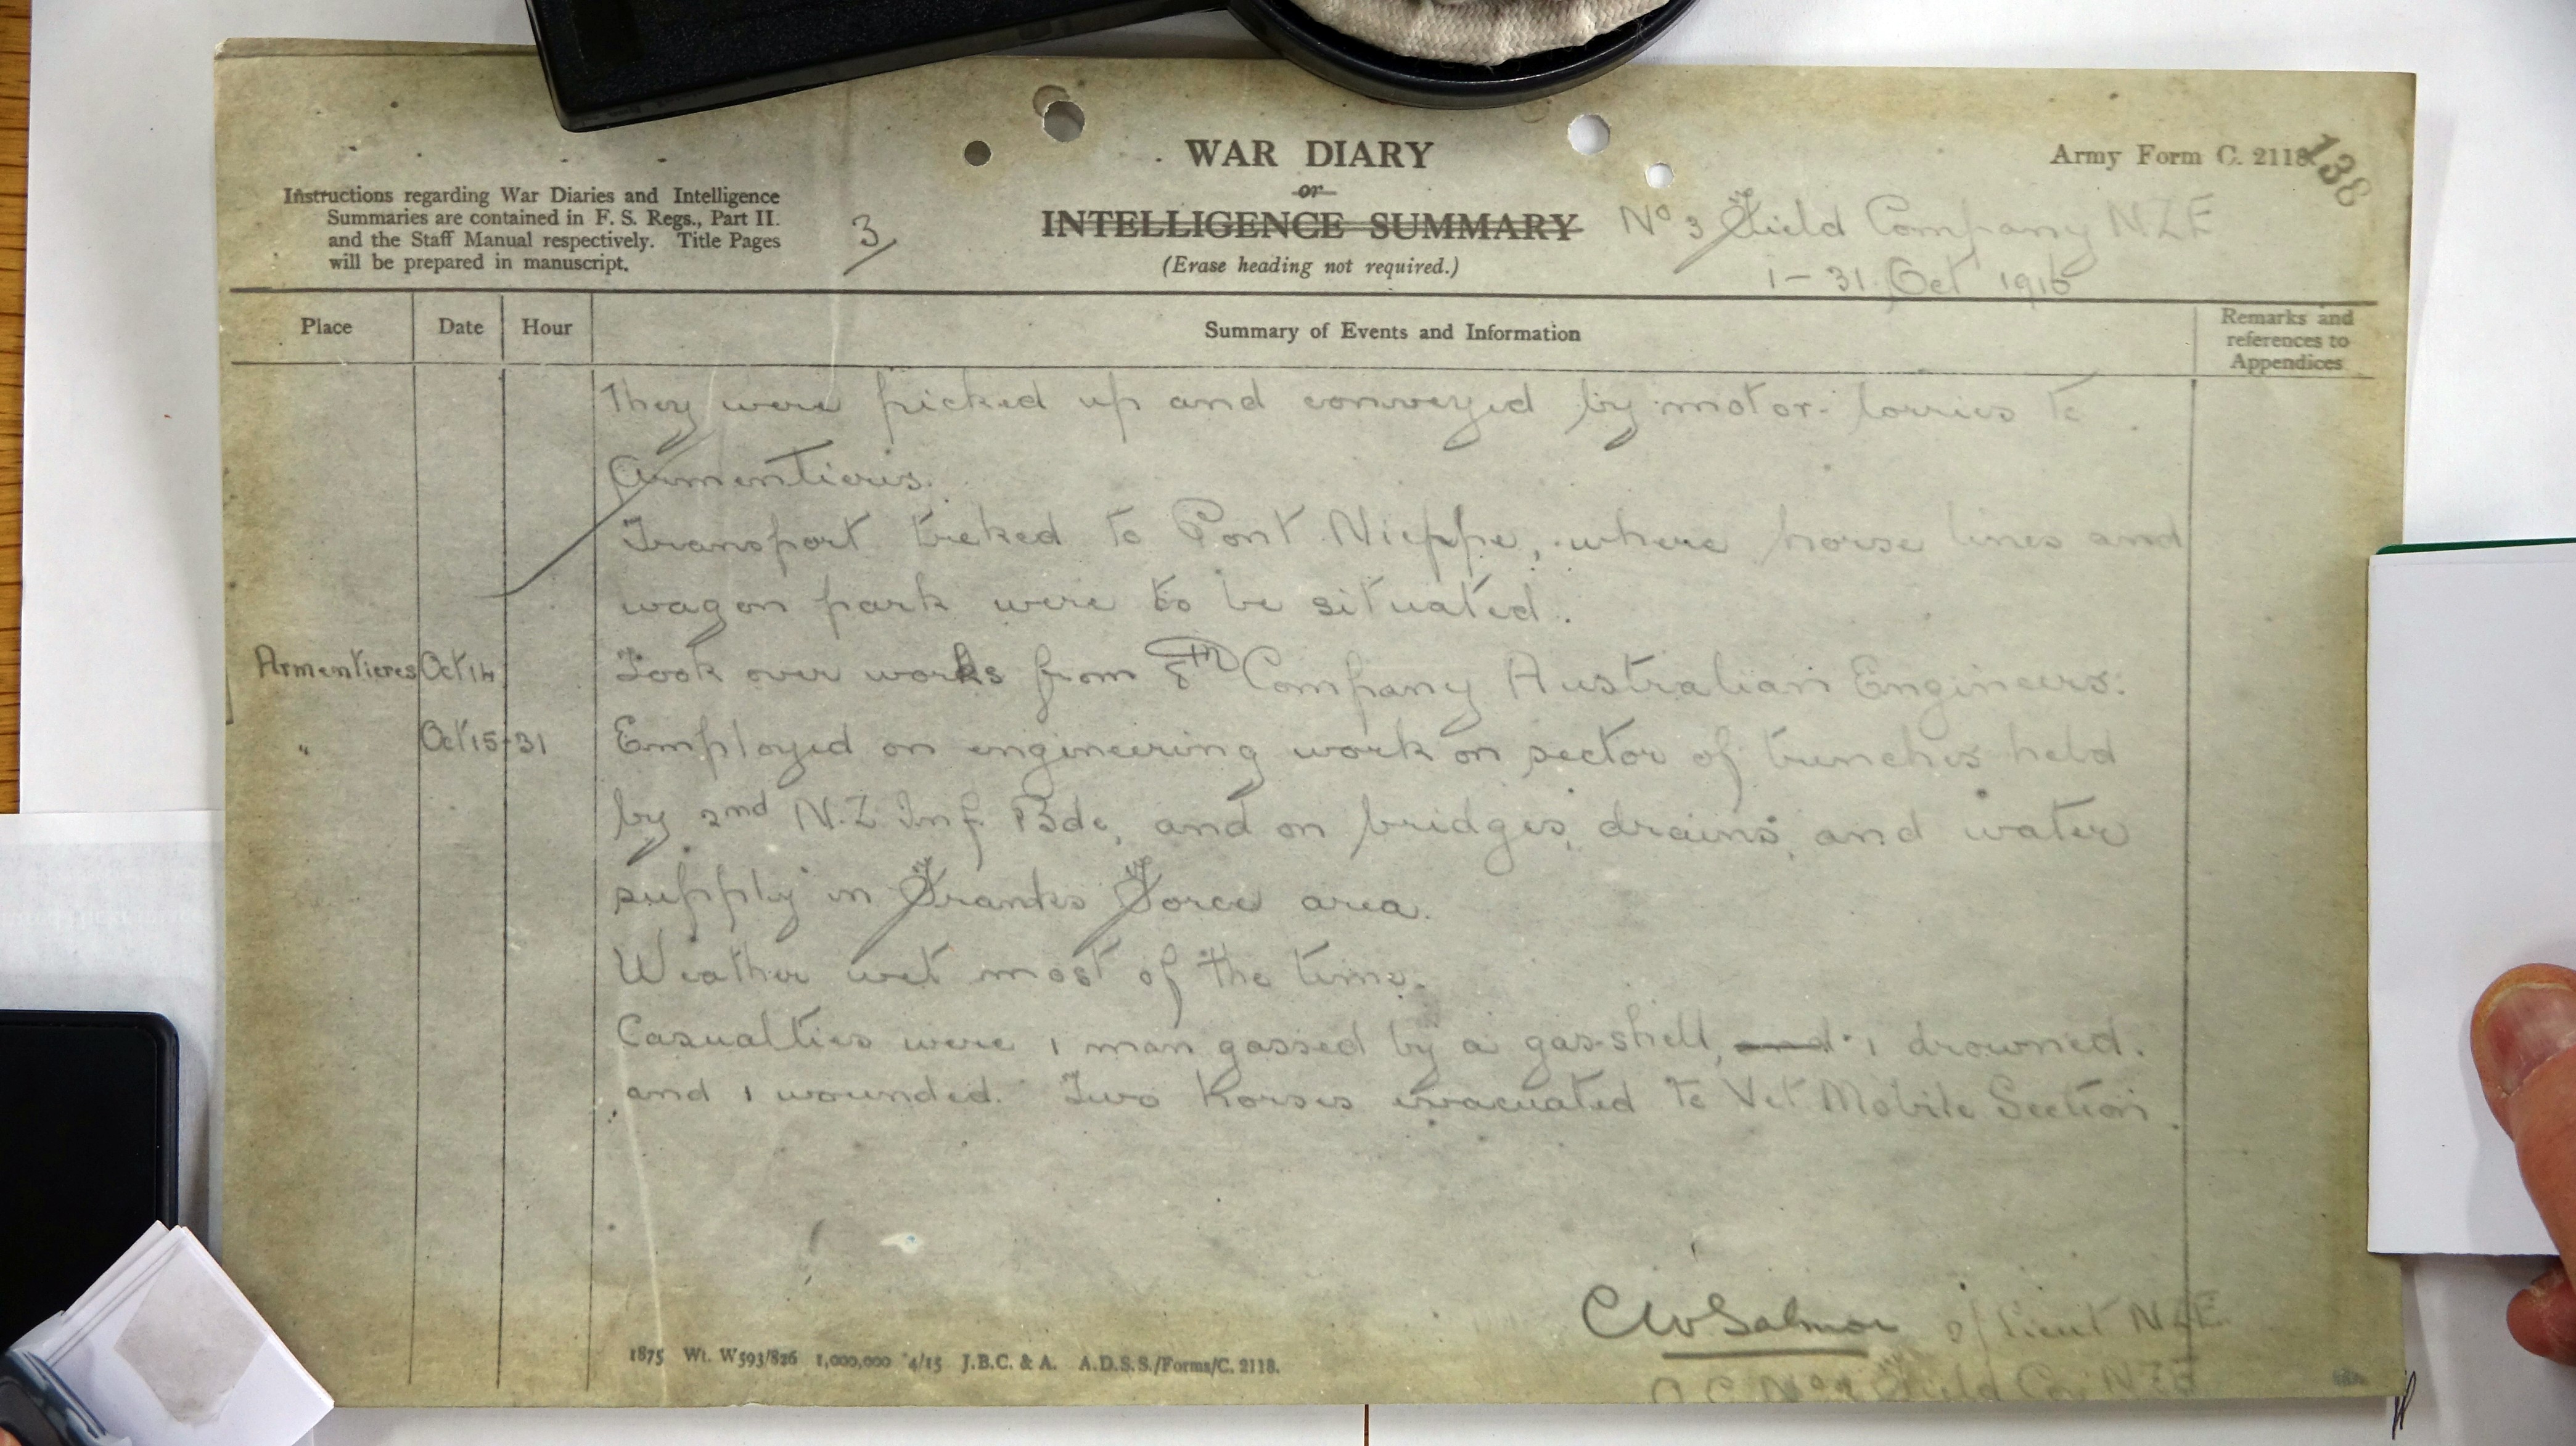 WAR DIARY
or
INTELLIGENCE SUMMARY
(Erase heading not required.)
Army Form C. 2118.
138
Instructions regarding War Diaries and Intelligence
Summaries are contained in F. S. Regs., Part II.
and the Staff Manual respectively. Title Pages
will be prepared in manuscript.
3/
No 3 Field Company NZE
1 - 31 Oct 1916
Place Date Hour Summary of Events and Information Remarks and references to Appendices
They were picked up and conveyed by motor lorries to
Armentieres.
Transport treked to Pont Nieppe, where horse lines and
wagon park were to be situated.
Armentieres Oct 14 Took over works from 8th Company Australian Engineers.
" Oct 15-31 Employed on engineering work on sector of trenches held
by 2nd N.Z. Inf. Bde, and on bridges, drains, and water
supply in Franks Force area.
Weather wet most of the time.
Casualties were 1 man gassed by a gas shell, and 1 drowned.
and 1 wounded. Two horses evacuated to Vet Mobile Section.
CW Salmon Lieut NZE
O.C. No 3 Field Coy NZE
1875 Wt. W593/826 1,000,000 4/15 J.B.C. & A. A.D.S.S./Forms/C. 2118.